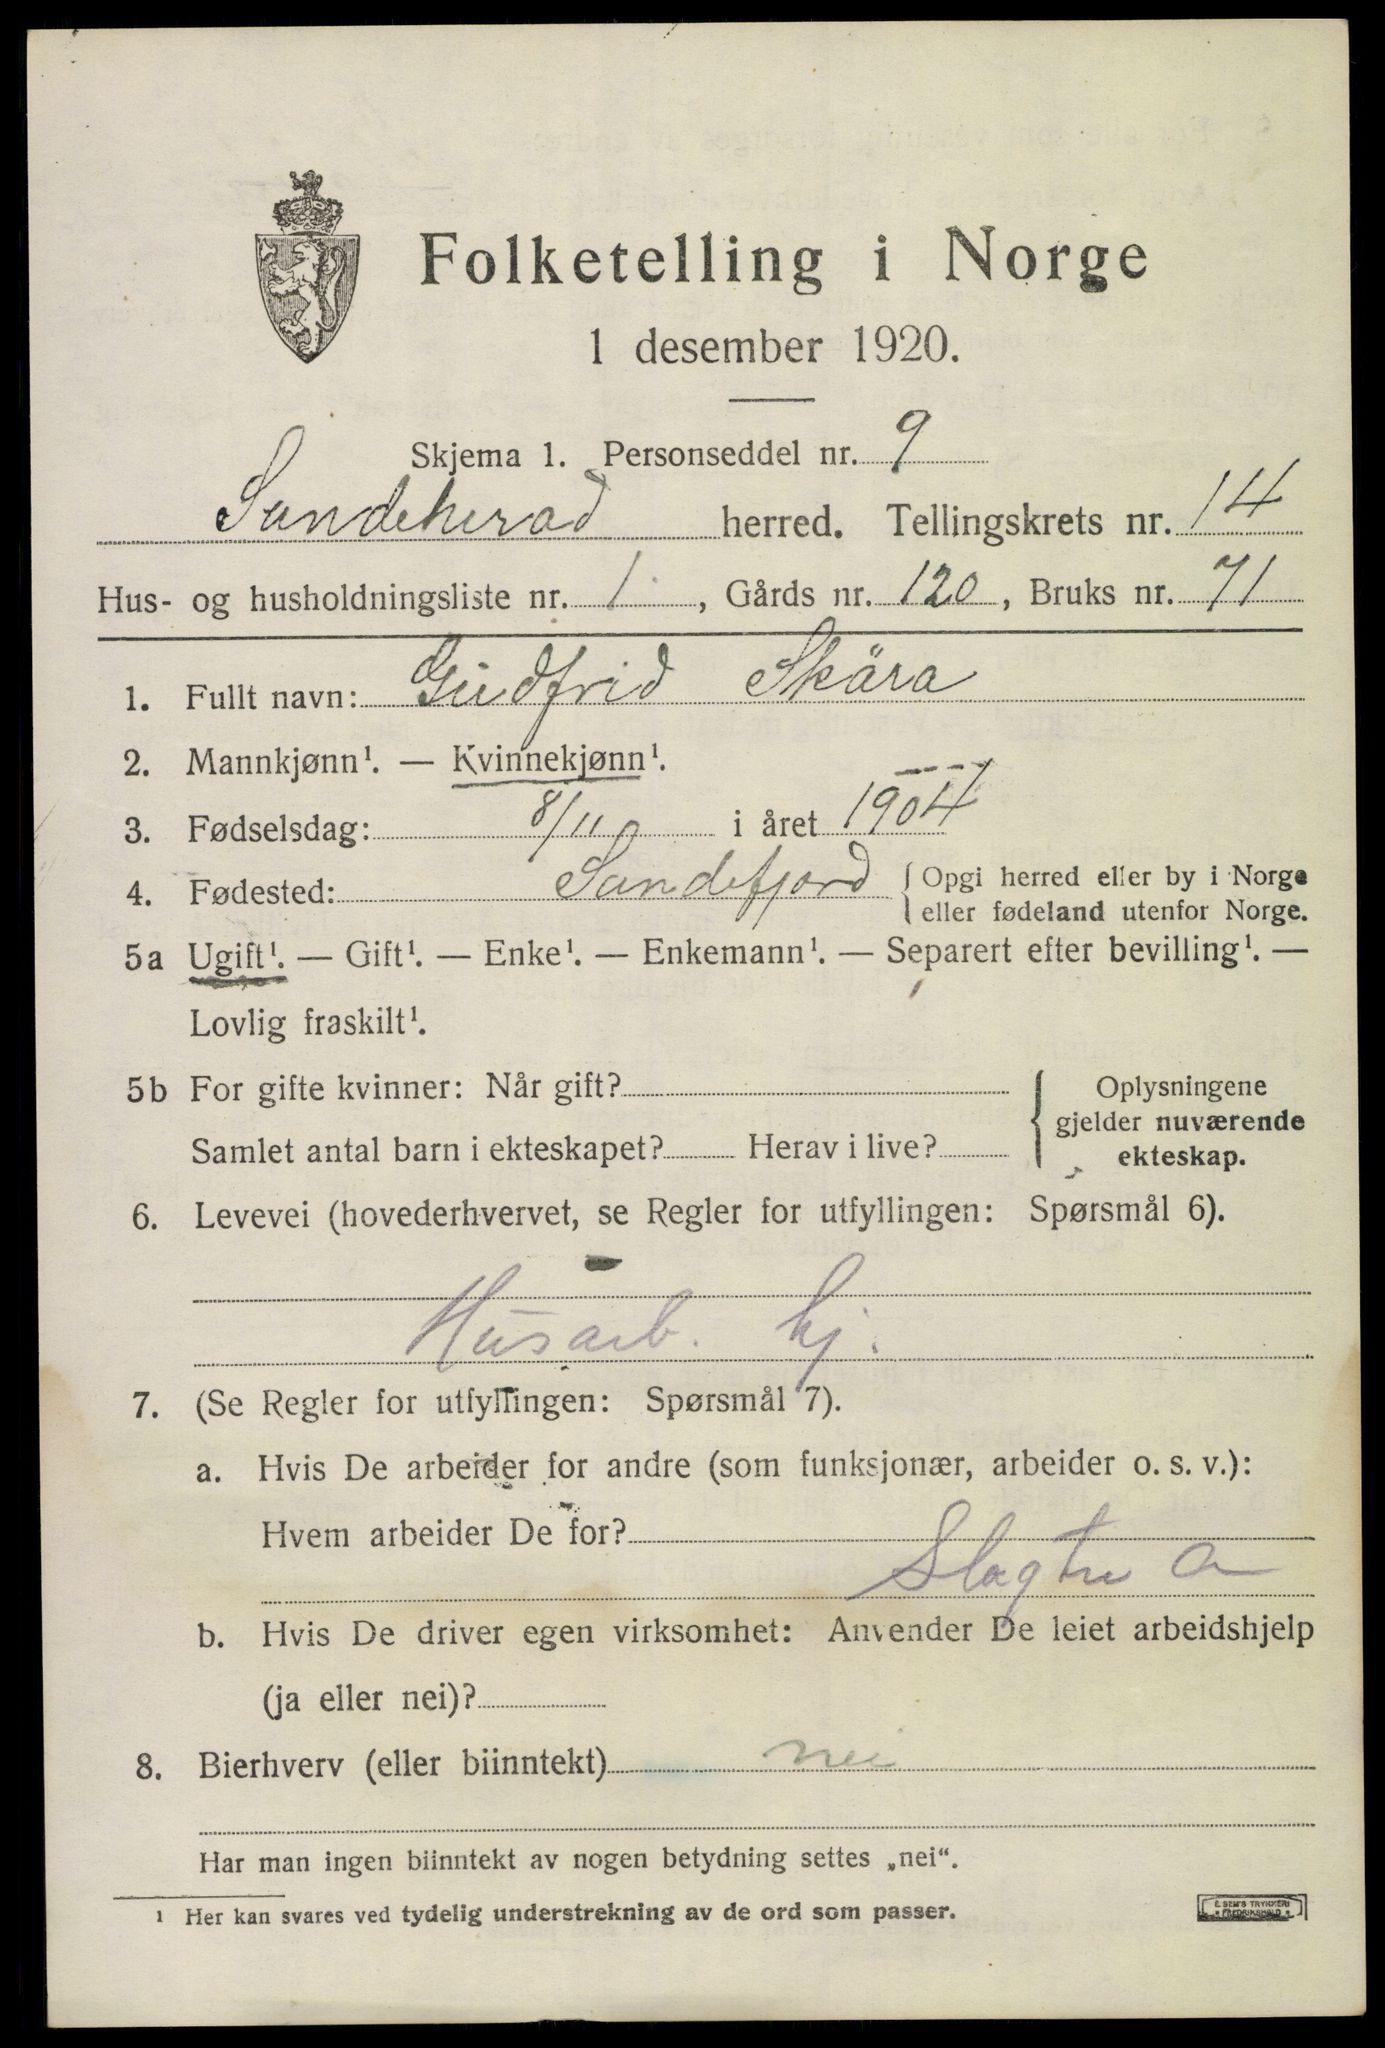 Folketelling i Norge
1 desember 1920.
Skjema 1. Personseddel nr. 9
Sandeherad herred. Tellingskrets nr. 14
Hus- og husholdningsliste nr. 1, Gårds nr. 120, Bruks nr. 71
1. Fullt navn: Gudfrid Skära
2. Mannkjønn¹. — Kvinnekjønn¹.
3. Fødselsdag: 8/11 i året 1904
4. Fødested: Sandefjord { Opgi herred eller by i Norge
eller fødeland utenfor Norge.
5a Ugift¹. — Gift¹. — Enke¹. — Enkemann¹. — Separert efter bevilling¹. —
Lovlig fraskilt¹.
5b For gifte kvinner: Når gift? { Oplysningene
gjelder nuværende
Samlet antal barn i ekteskapet? Herav i live?
ekteskap.
6. Levevei (hovederhvervet, se Regler for utfyllingen: Spørsmål 6).
Husarb. hj.
7. (Se Regler for utfyllingen: Spørsmål 7).
a. Hvis De arbeider for andre (som funksjonær, arbeider o. s. v.):
Hvem arbeider De for?
b. Hvis De driver egen virksomhet: Anvender De leiet arbeidshjelp
(ja eller nei)?
8. Bierhverv (eller biinntekt) nei
Har man ingen biinntekt av nogen betydning settes „nei“.
¹ Her kan svares ved tydelig understrekning av de ord som passer.
E. SEM'S TRYKKERI
FREDRIKSHALD